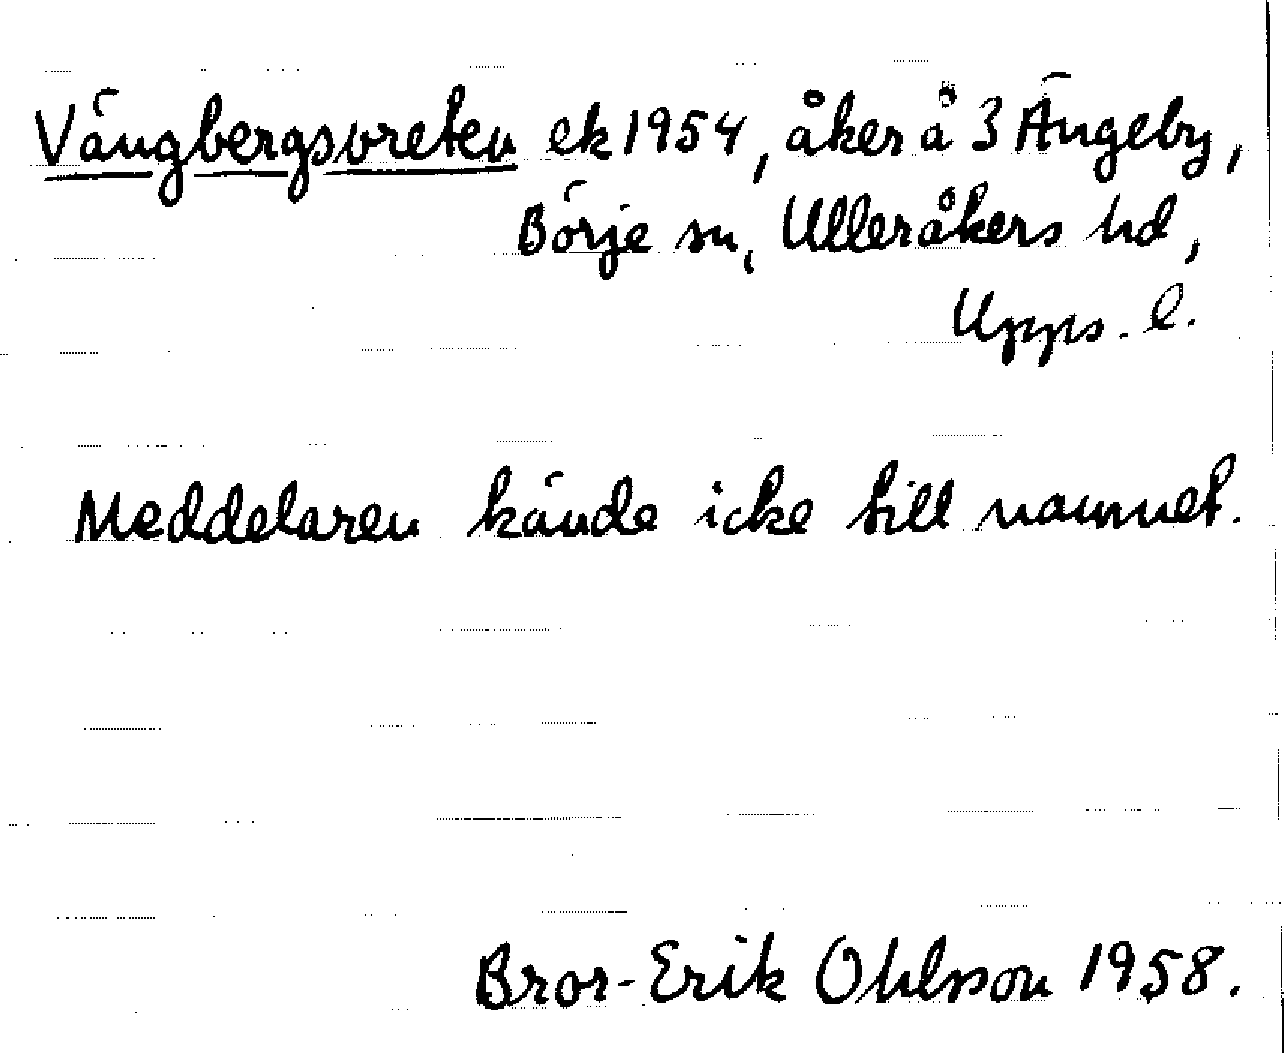 Vängbergsvreten ek 1954, åker å 3 Ängeby,
Börje sn, Ulleråkers hd,
Upps. l.
Meddelaren kände icke till namnet.
Bror-Erik Ohlsson 1958.